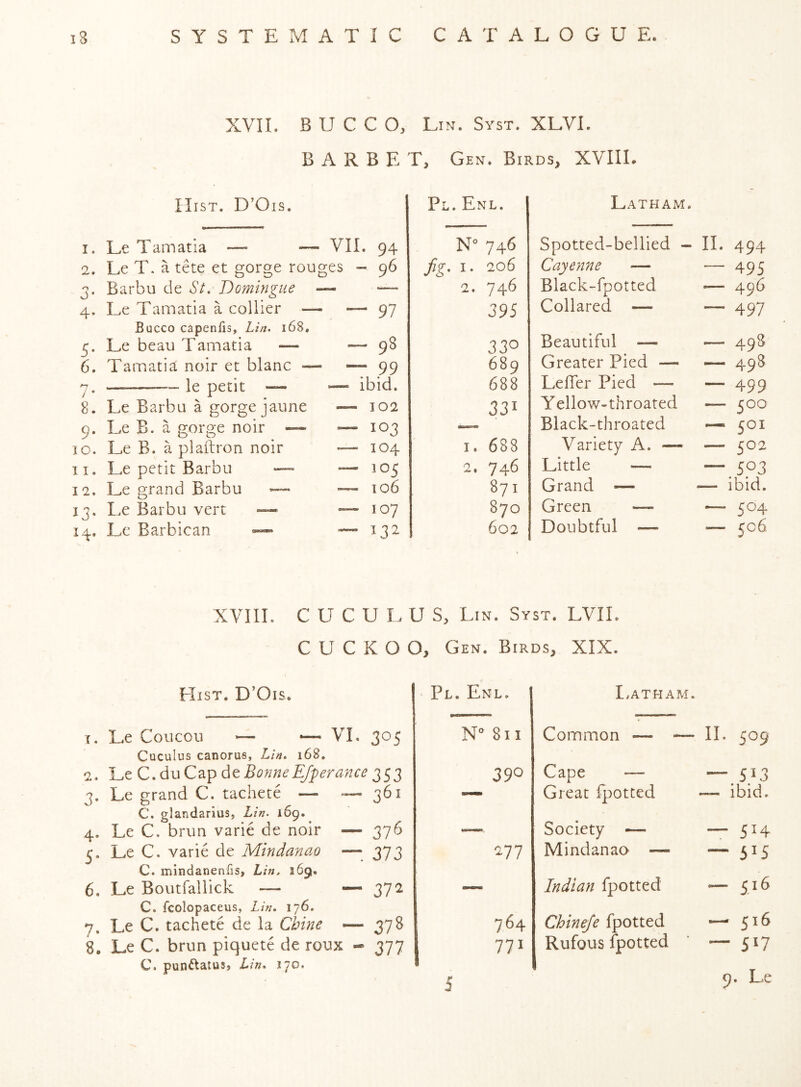 18 SYSTEMATIC CATALOGUE.
XVII. BUCCO, Lin. Syst. XLVI.
BARBET, Gen. Birds, XVIII.
Hist. D'Ois. Pl. Enl. Latham.
1. Le Tamatia — — VII. 94 N° 746 Spotted-bellied - II. 494
2. Le T. à tête et gorge rouges - 96 fig. 1. 206 Cayenne — — 495
3. Barbu de St. Domingue — — 2. 746 Black-ſpotted — 496
4. Le Tamatia à collier — — 97 395 Collared — — 497
Bucco capenſis, Lin. 168.
5. Le beau Tamatia — — 98 330 Beautiful — — 498
6. Tamatia noir et blanc — — 99 689 Greater Pied — — 498
7. ——— le petit — — ibid. 688 Leſſer Pied — — 499
8. Le Barbu à gorge jaune — 102 331 Yellow-throated — 500
9. Le B. à gorge noir — — 103 — Black-throated — 501
10. Le B. à plaſtron noir — 104 1. 688 Variety A. — — 502
11. Le petit Barbu — — 105 2. 746 Little — — 503
12. Le grand Barbu — — 106 871 Grand — — ibid.
13. Le Barbu vert — — 107 870 Green — — 504
14. Le Barbican — — 132 602 Doubtful — — 506
XVIII. CUCULUS, Lin. Syst. LVII.
CUCKOO, Gen. Birds, XIX.
Hist. D'Ois. Pl. Enl. Latham.
1. Le Coucou — — VI. 305 N° 811 Common — — II. 509
Cuculus canorus, Lin. 168.
2. Le C. du Cap de Bonne Eſperance 353 390 Cape — — 513
3. Le grand C. tacheté — — 361 — Great ſpotted — ibid.
C. glandarius, Lin. 169.
4. Le C. brun varié de noir — 376 — Society — — 514
5. Le C. varié de Mindanao — 373 277 Mindanao — — 515
C. mindanenſis, Lin. 169.
6. Le Boutſallick — — 372 — Indian ſpotted — 516
C. ſcolopaceus, Lin. 176.
7. Le C. tacheté de la Chine — 378 764 Chineſe ſpotted — 516
8. Le C. brun piqueté de roux - 377 771 Rufous ſpotted — 517
C. punctatus, Lin. 170.
5 9. Le